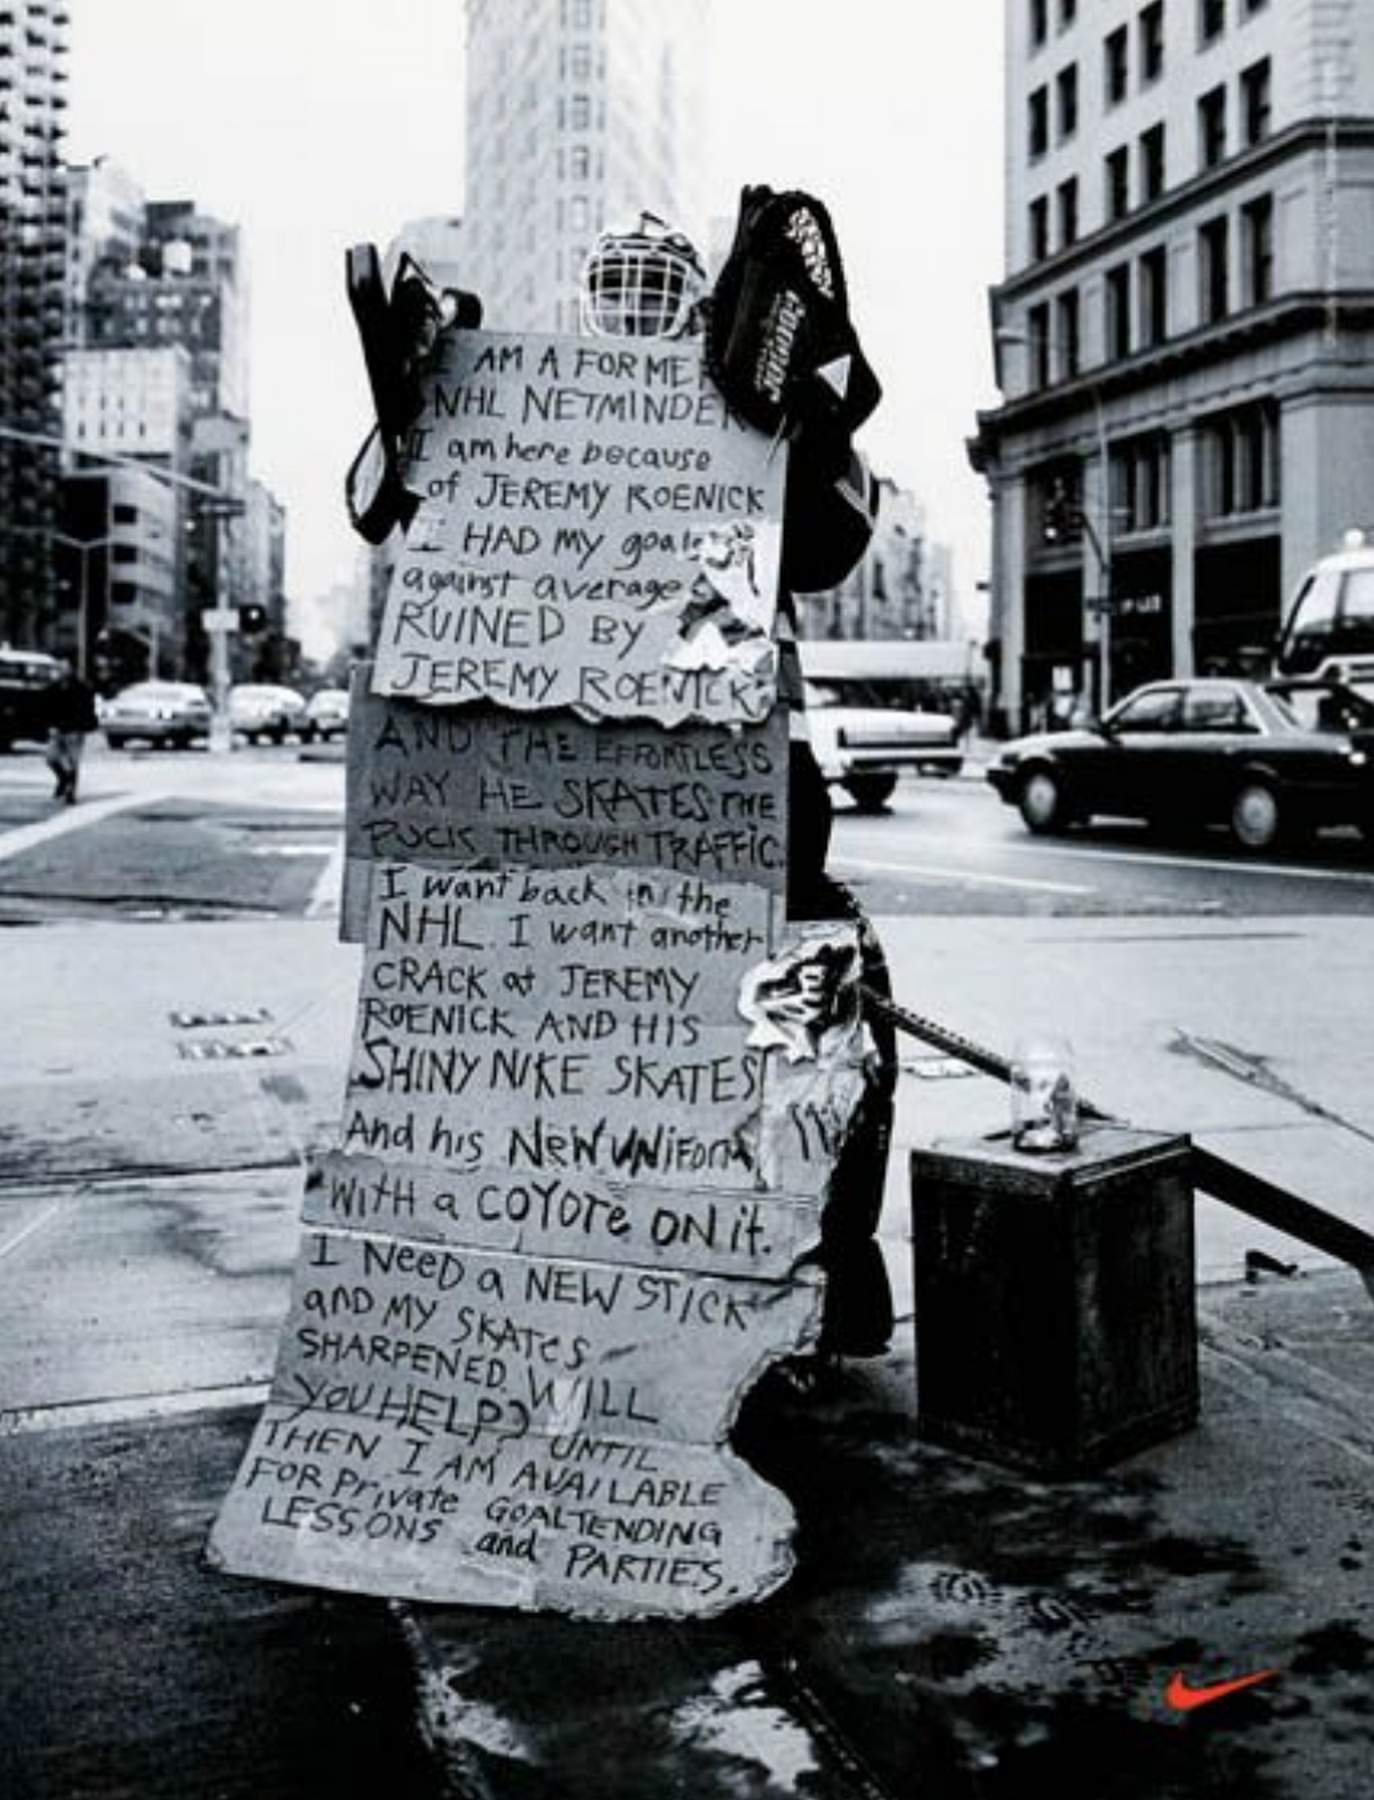 I AM A FORMER
NHL NETMINDER
I am here because
of JEREMY ROENICK
I HAD MY goals
against average
RUINED BY
JEREMY ROENICK
AND THE EFFORTLESS
WAY HE SKATES THE
PUCK THROUGH TRAFFIC.
I want back in the
NHL. I want another
CRACK at JEREMY
ROENICK AND HIS
SHINY NIKE SKATES
And his NEW UNIFORM
WITH a COYOTE ON it.
I NeeD a NEW STICK
and MY SKATES
SHARPENED. WILL
YOU HELP? UNTIL
THEN I AM AVAILABLE
FOR Private GOALTENDING
LESSONS and PARTIES.